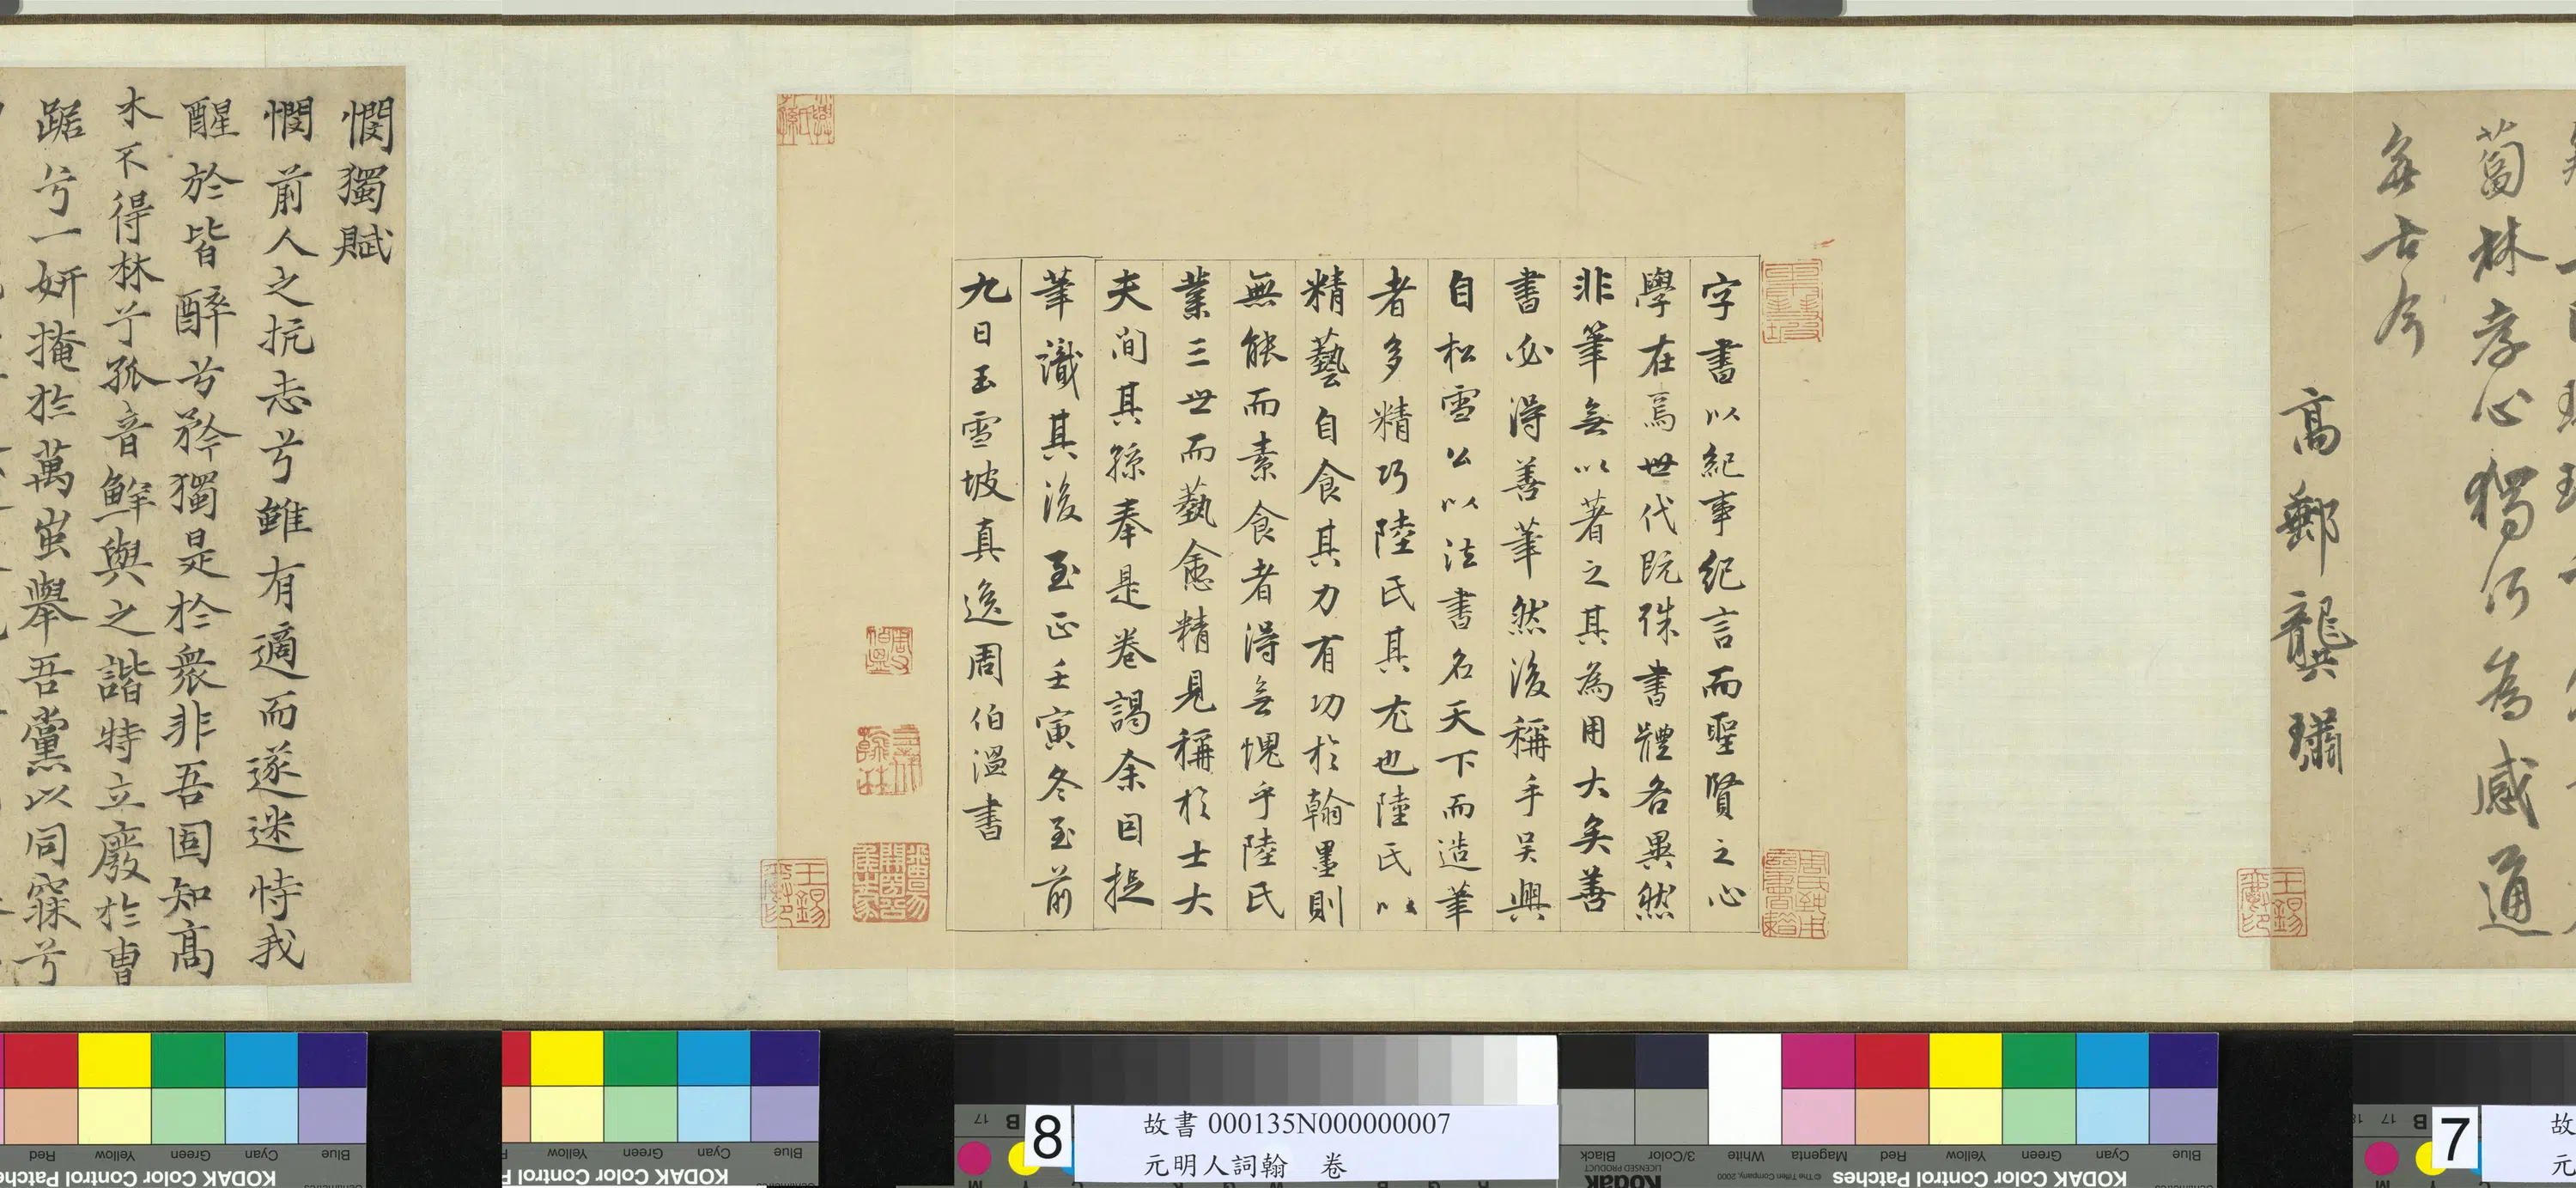 蔔林孝心獨何為感通
無古今
高郵龔璛
字書以紀事紀言而聖賢之心
學在焉世代既殊書體各異然
非筆無以著之其為用大矣善
書必得善筆然後稱手吳興
自松雪公以法書名天下而造筆
者多精巧陸氏其尤也陸氏以
精藝自食其力有功於翰墨則
無能而素食者得無愧乎陸氏
業三世而藝愈精見稱於士大
夫間其孫奉是卷謁余因捉
筆識其後至正壬寅冬至前
九日玉雪坡真逸周伯溫書
憫獨賦
憫前人之抗志兮雖有適而遂迷恃我
醒於皆醉兮矜獨是於衆非吾固知高
木不得林兮孤音鮮與之諧特立廢於曹
踞兮一妍掩於萬蚩舉吾黨以同寐兮
王錫
王錫
8
故書 000135N000000007
元明人詞翰 卷
7
故
元
Blue
Cyan
Green
Yellow
Red
KODAK Color Control Patches
Blue
Cyan
Green
Yellow
KODAK Color Control Patches
Blue
Cyan
Green
Yellow
Red
Magenta
White
3/Color
Black
KODAK Color Control Patches
Kodak
LICENSED PRODUCT
© The Tiffen Company, 2000
17
B
17
B